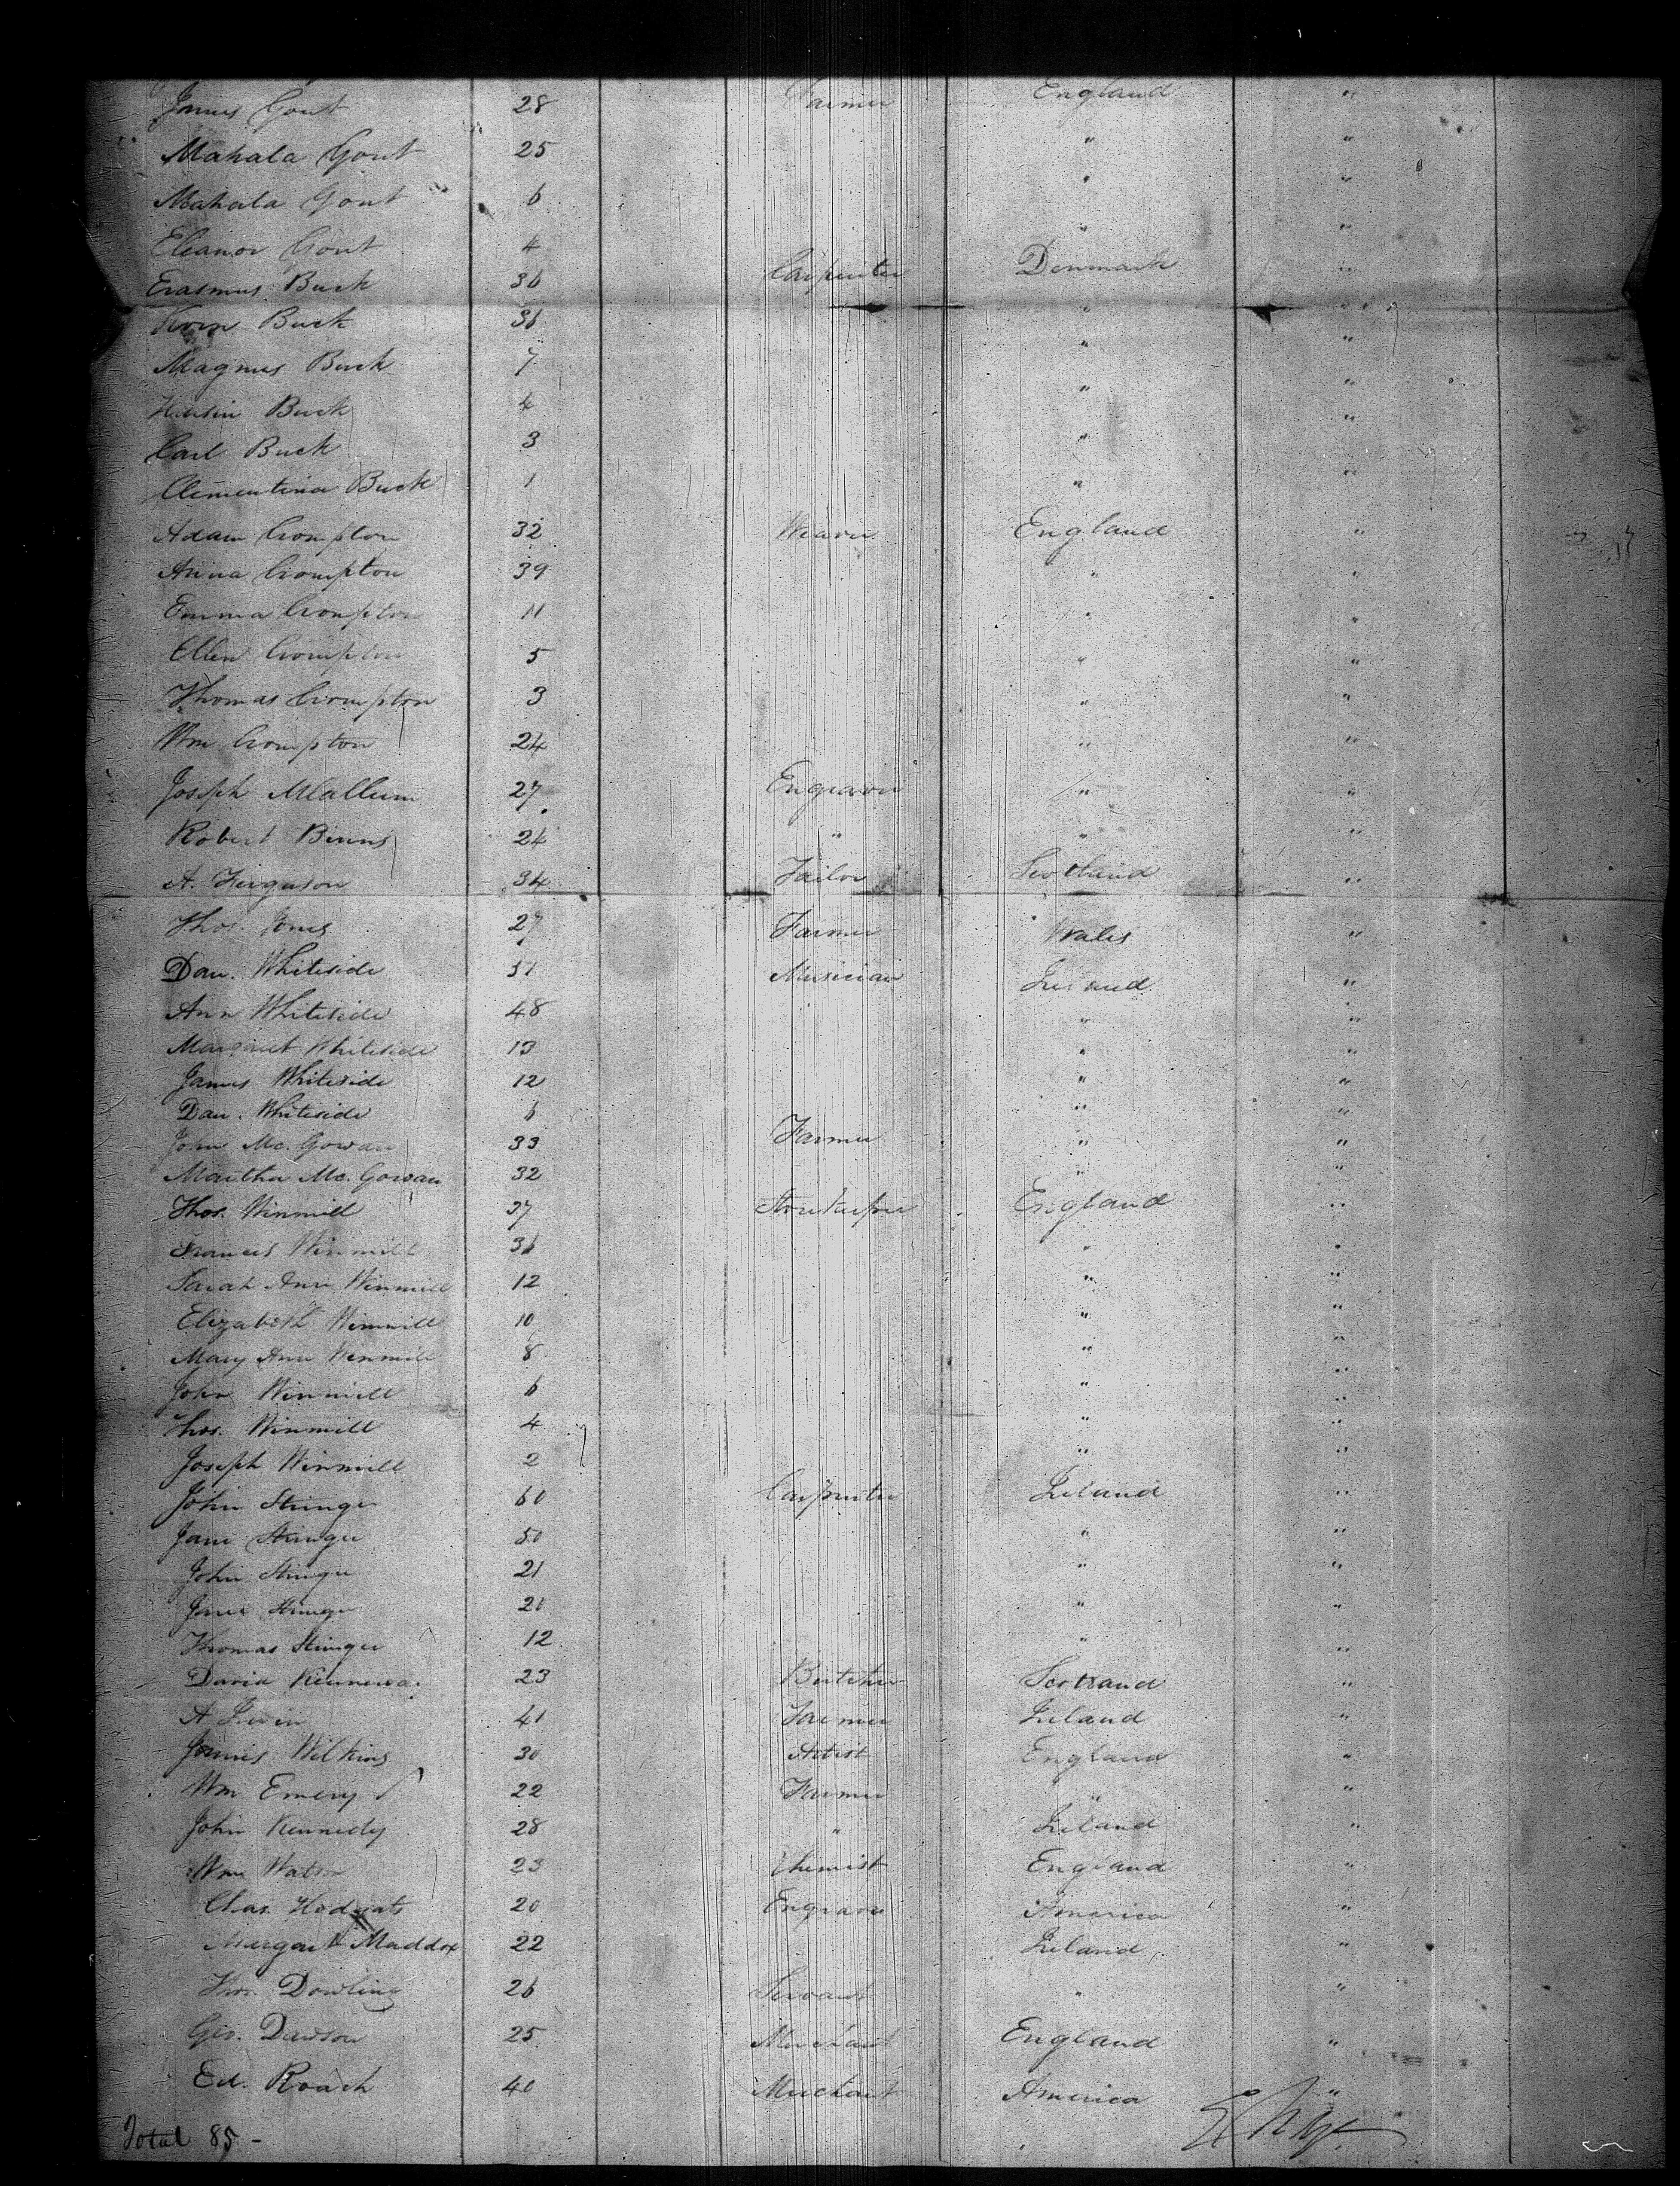 James Gout 28 Farmer England "
Mahala Gout 25 " "
Mahala Gout 6 " "
Eleanor Gout 4 " "
Erasmus Buck 36 Carpenter Denmark "
Buck 36 " "
Magnus Buck 7 " "
Buck 4 " "
Carl Buck 3 " "
Clementina Buck 1 " "
Adam Crompton 32 Weaver England "
Anna Crompton 39 " "
Emma Crompton 11 " "
Ellen Crompton 5 " "
Thomas Crompton 3 " "
Wm Crompton 24 " "
Joseph McCallum 27 Engraver " "
Robert Binns 24 " " "
A. Ferguson 34 Tailor Scotland "
Thos. Jones 27 Farmer Wales "
Dan. Whiteside 51 Musician Ireland "
Ann Whiteside 48 " "
Margaret Whiteside 13 " "
James Whiteside 12 " "
Dan. Whiteside 6 " "
John Mc. Gowan 33 Farmer " "
Martha Mc. Gowan 32 " "
Thos. Winmill 37 Storekeeper England "
Frances Winmill 36 " "
Sarah Ann Winmill 12 " "
Elizabeth Winmill 10 " "
Mary Ann Winmill 8 " "
John Winmill 6 " "
Thos. Winmill 4 " "
Joseph Winmill 2 " "
John Stringer 60 Carpenter Ireland "
Jane Stringer 50 " "
John Stringer 21 " "
Jane Stringer 20 " "
Thomas Stringer 12 " "
David 23 Butcher Scotland "
A Irwin 41 Farmer Ireland "
James Wilkins 30 Artist England "
Wm Emery 22 Farmer " "
John Kennedy 28 " Ireland "
Wm Watson 23 Chemist England "
Chas. Hodgats 20 Engraver America "
Margaret Maddox 22 Ireland "
Thos. Dowling 26 Servant " "
Geo. Dawson 25 Merchant England "
Ed. Roach 40 Merchant America "
Total 85 -